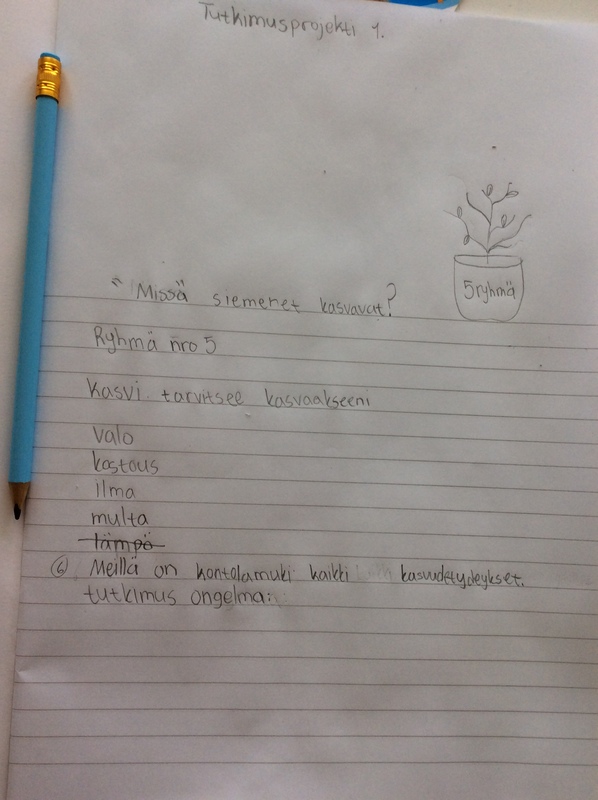 Tutkimusprojekti 1.
"Missä siemenet kasvavat?
5ryhmä
Ryhmä nro 5
Kasvi tarvitsee kasvaakseeni
valo
kostous
ilma
multa
lämpö
6 Meillä on kontolamuki kaikki kasvudetydeykset.
tutkimus ongelma: